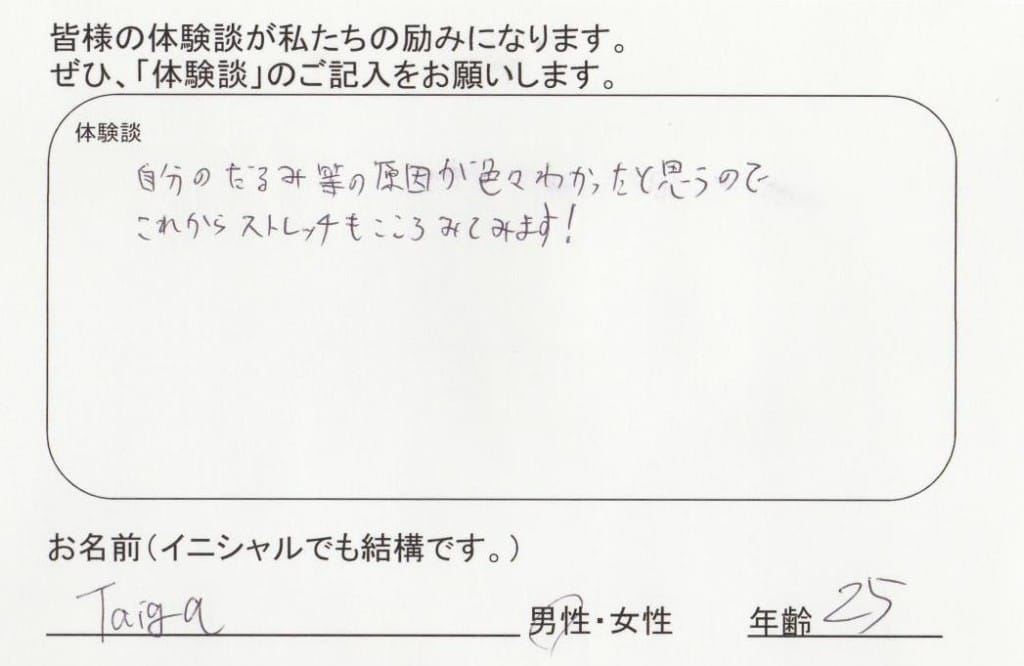 皆様の体験談が私たちの励みになります。
ぜひ、「体験談」のご記入をお願いします。
体験談
自分のたるみ等の原因が色々わかったと思うので
これからストレッチもこころみてみます!
お名前(イニシャルでも結構です。)
Taiga 男性・女性 年齢 25